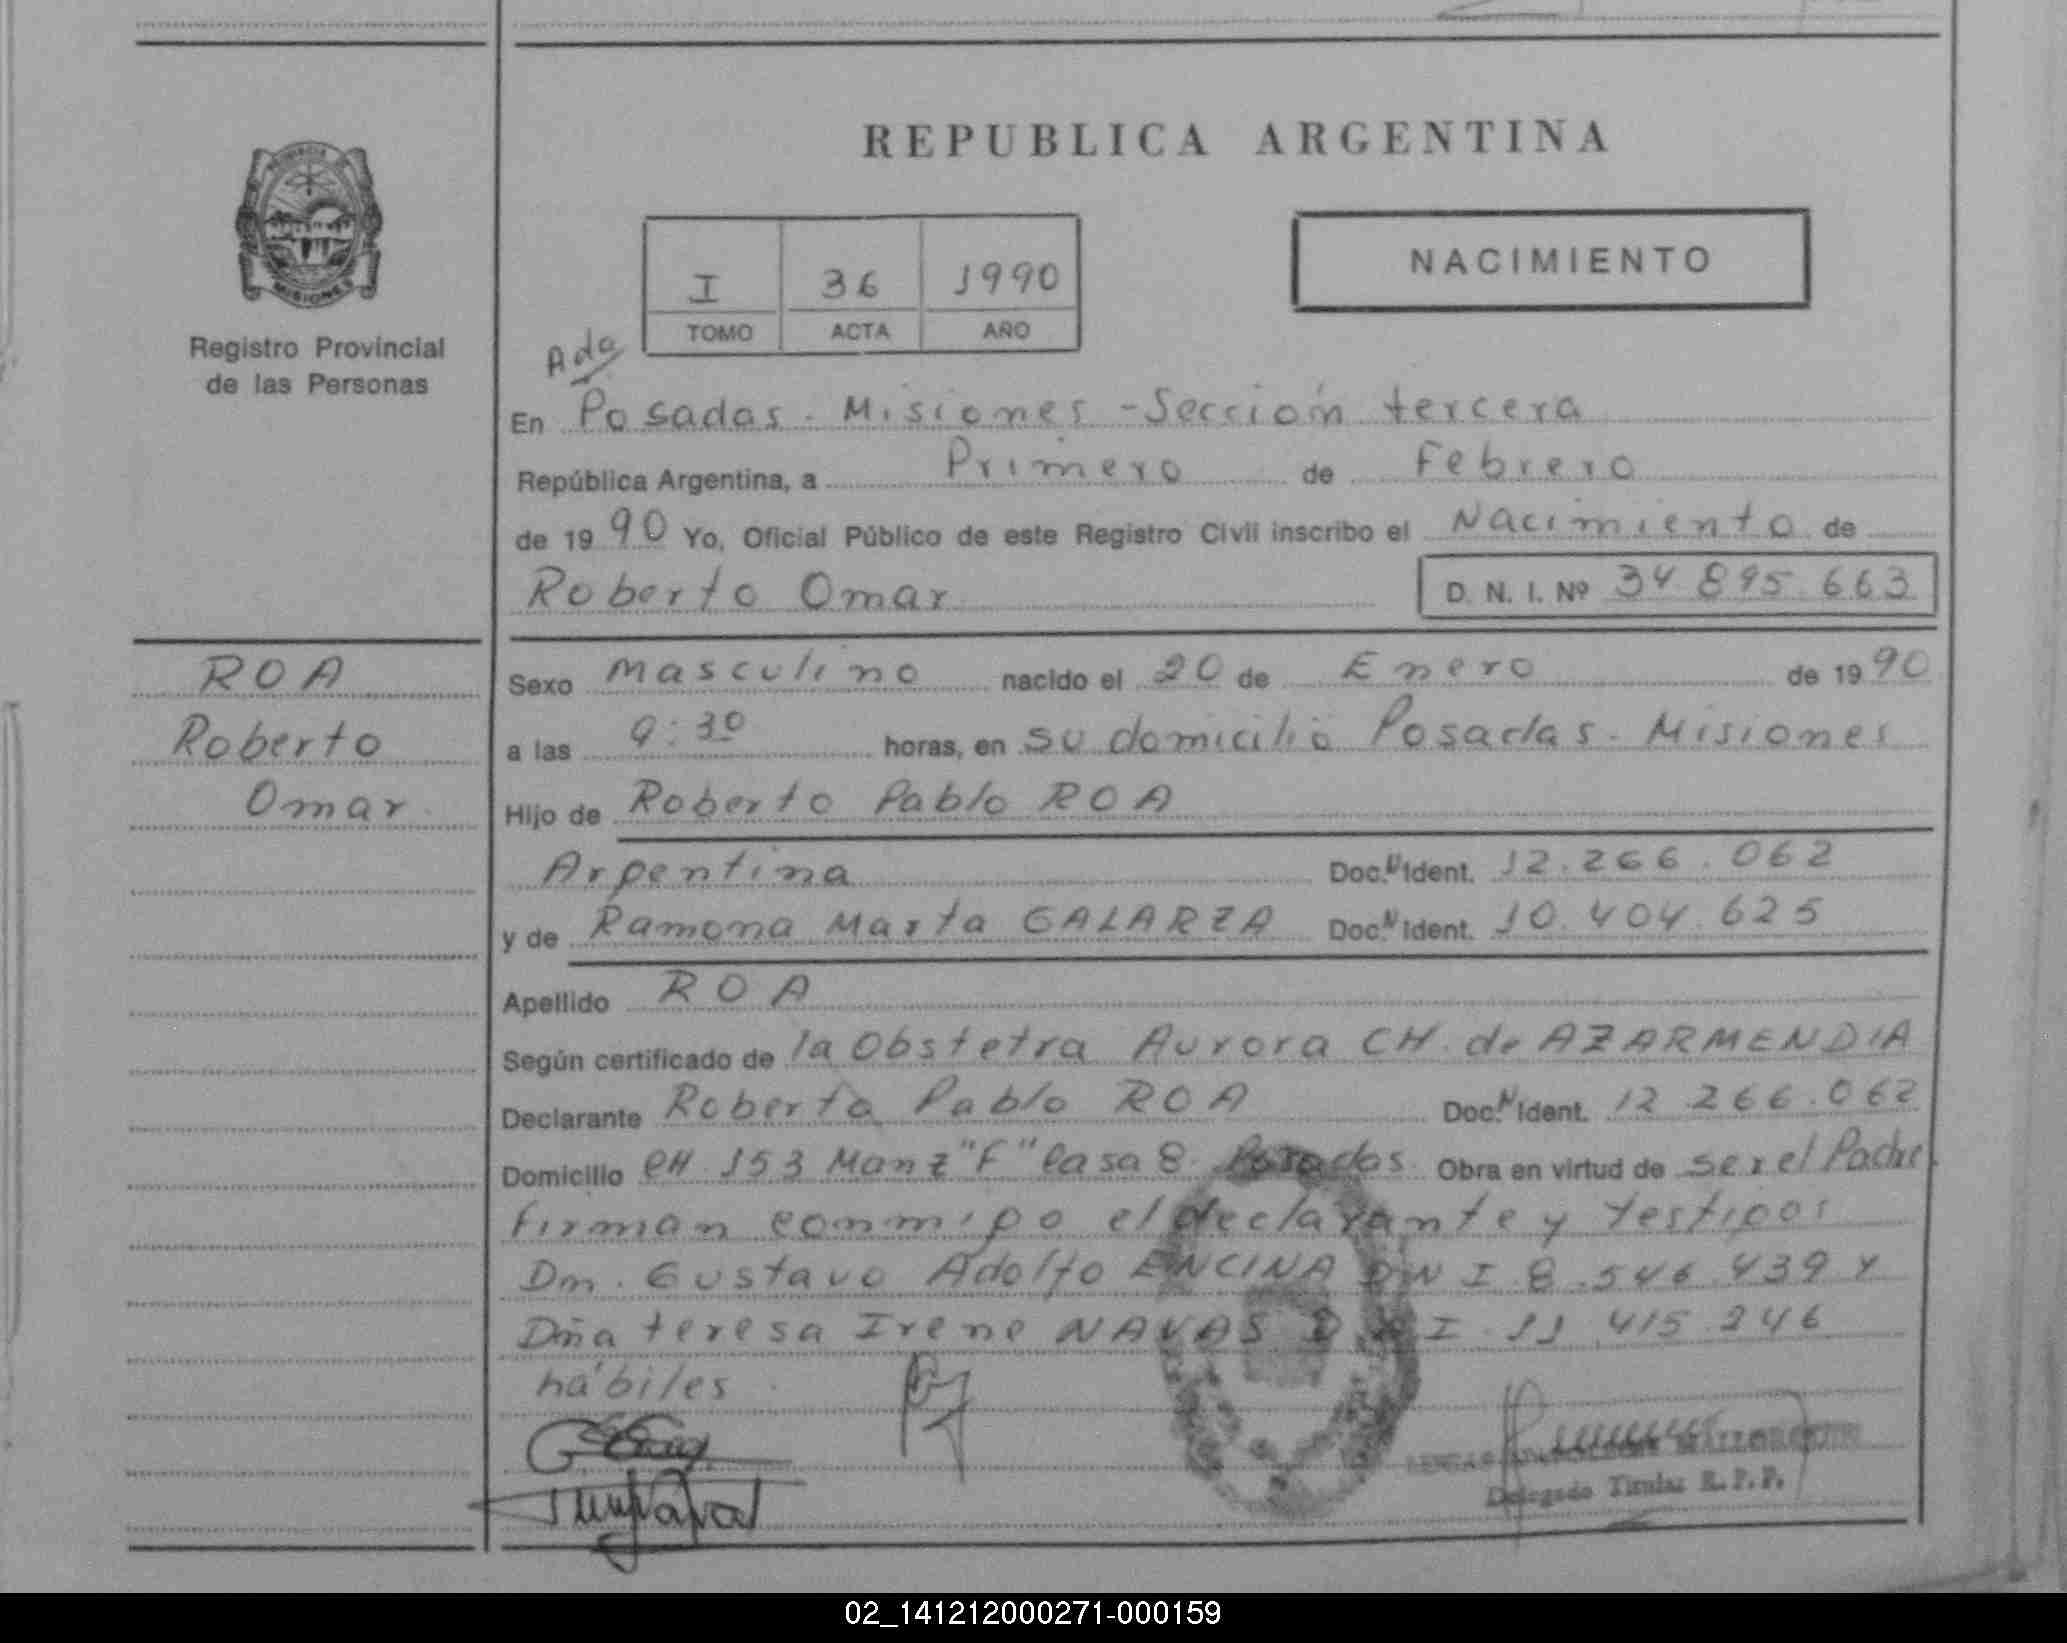 REPUBLICA ARGENTINA
PROVINCIA
MISIONES
Registro Provincial
de las Personas
I 36 1990
TOMO ACTA AÑO
NACIMIENTO
Ada
En Posadas - Misiones - Sección tercera
República Argentina, a Primero de Febrero
de 1990 Yo, Oficial Público de este Registro Civil inscribo el Nacimiento de
Roberto Omar D. N. I. Nº 34.895.663
ROA
Roberto
Omar
Sexo Masculino nacido el 20 de Enero de 1990
a las 9:30 horas, en su domicilio Posadas - Misiones
Hijo de Roberto Pablo ROA
Argentina Doc. N Ident. 12.266.062
y de Ramona Marta GALARZA Doc. N Ident. 10.404.625
Apellido ROA
Según certificado de la Obstetra Aurora CH. de AZARMENDIA
Declarante Roberto Pablo ROA Doc. N Ident. 12 266.062
Domicilio CH 153 Manz "F" Casa 8 Posadas. Obra en virtud de ser el Padre.
Firman conmigo el declarante y testigos
Dn. Gustavo Adolfo ENCINA DNI 8.546.439 y
Dña teresa Irene NAVAS DNI 11.415.246
hábiles
Delegado Titular R.P.P.
02_141212000271-000159